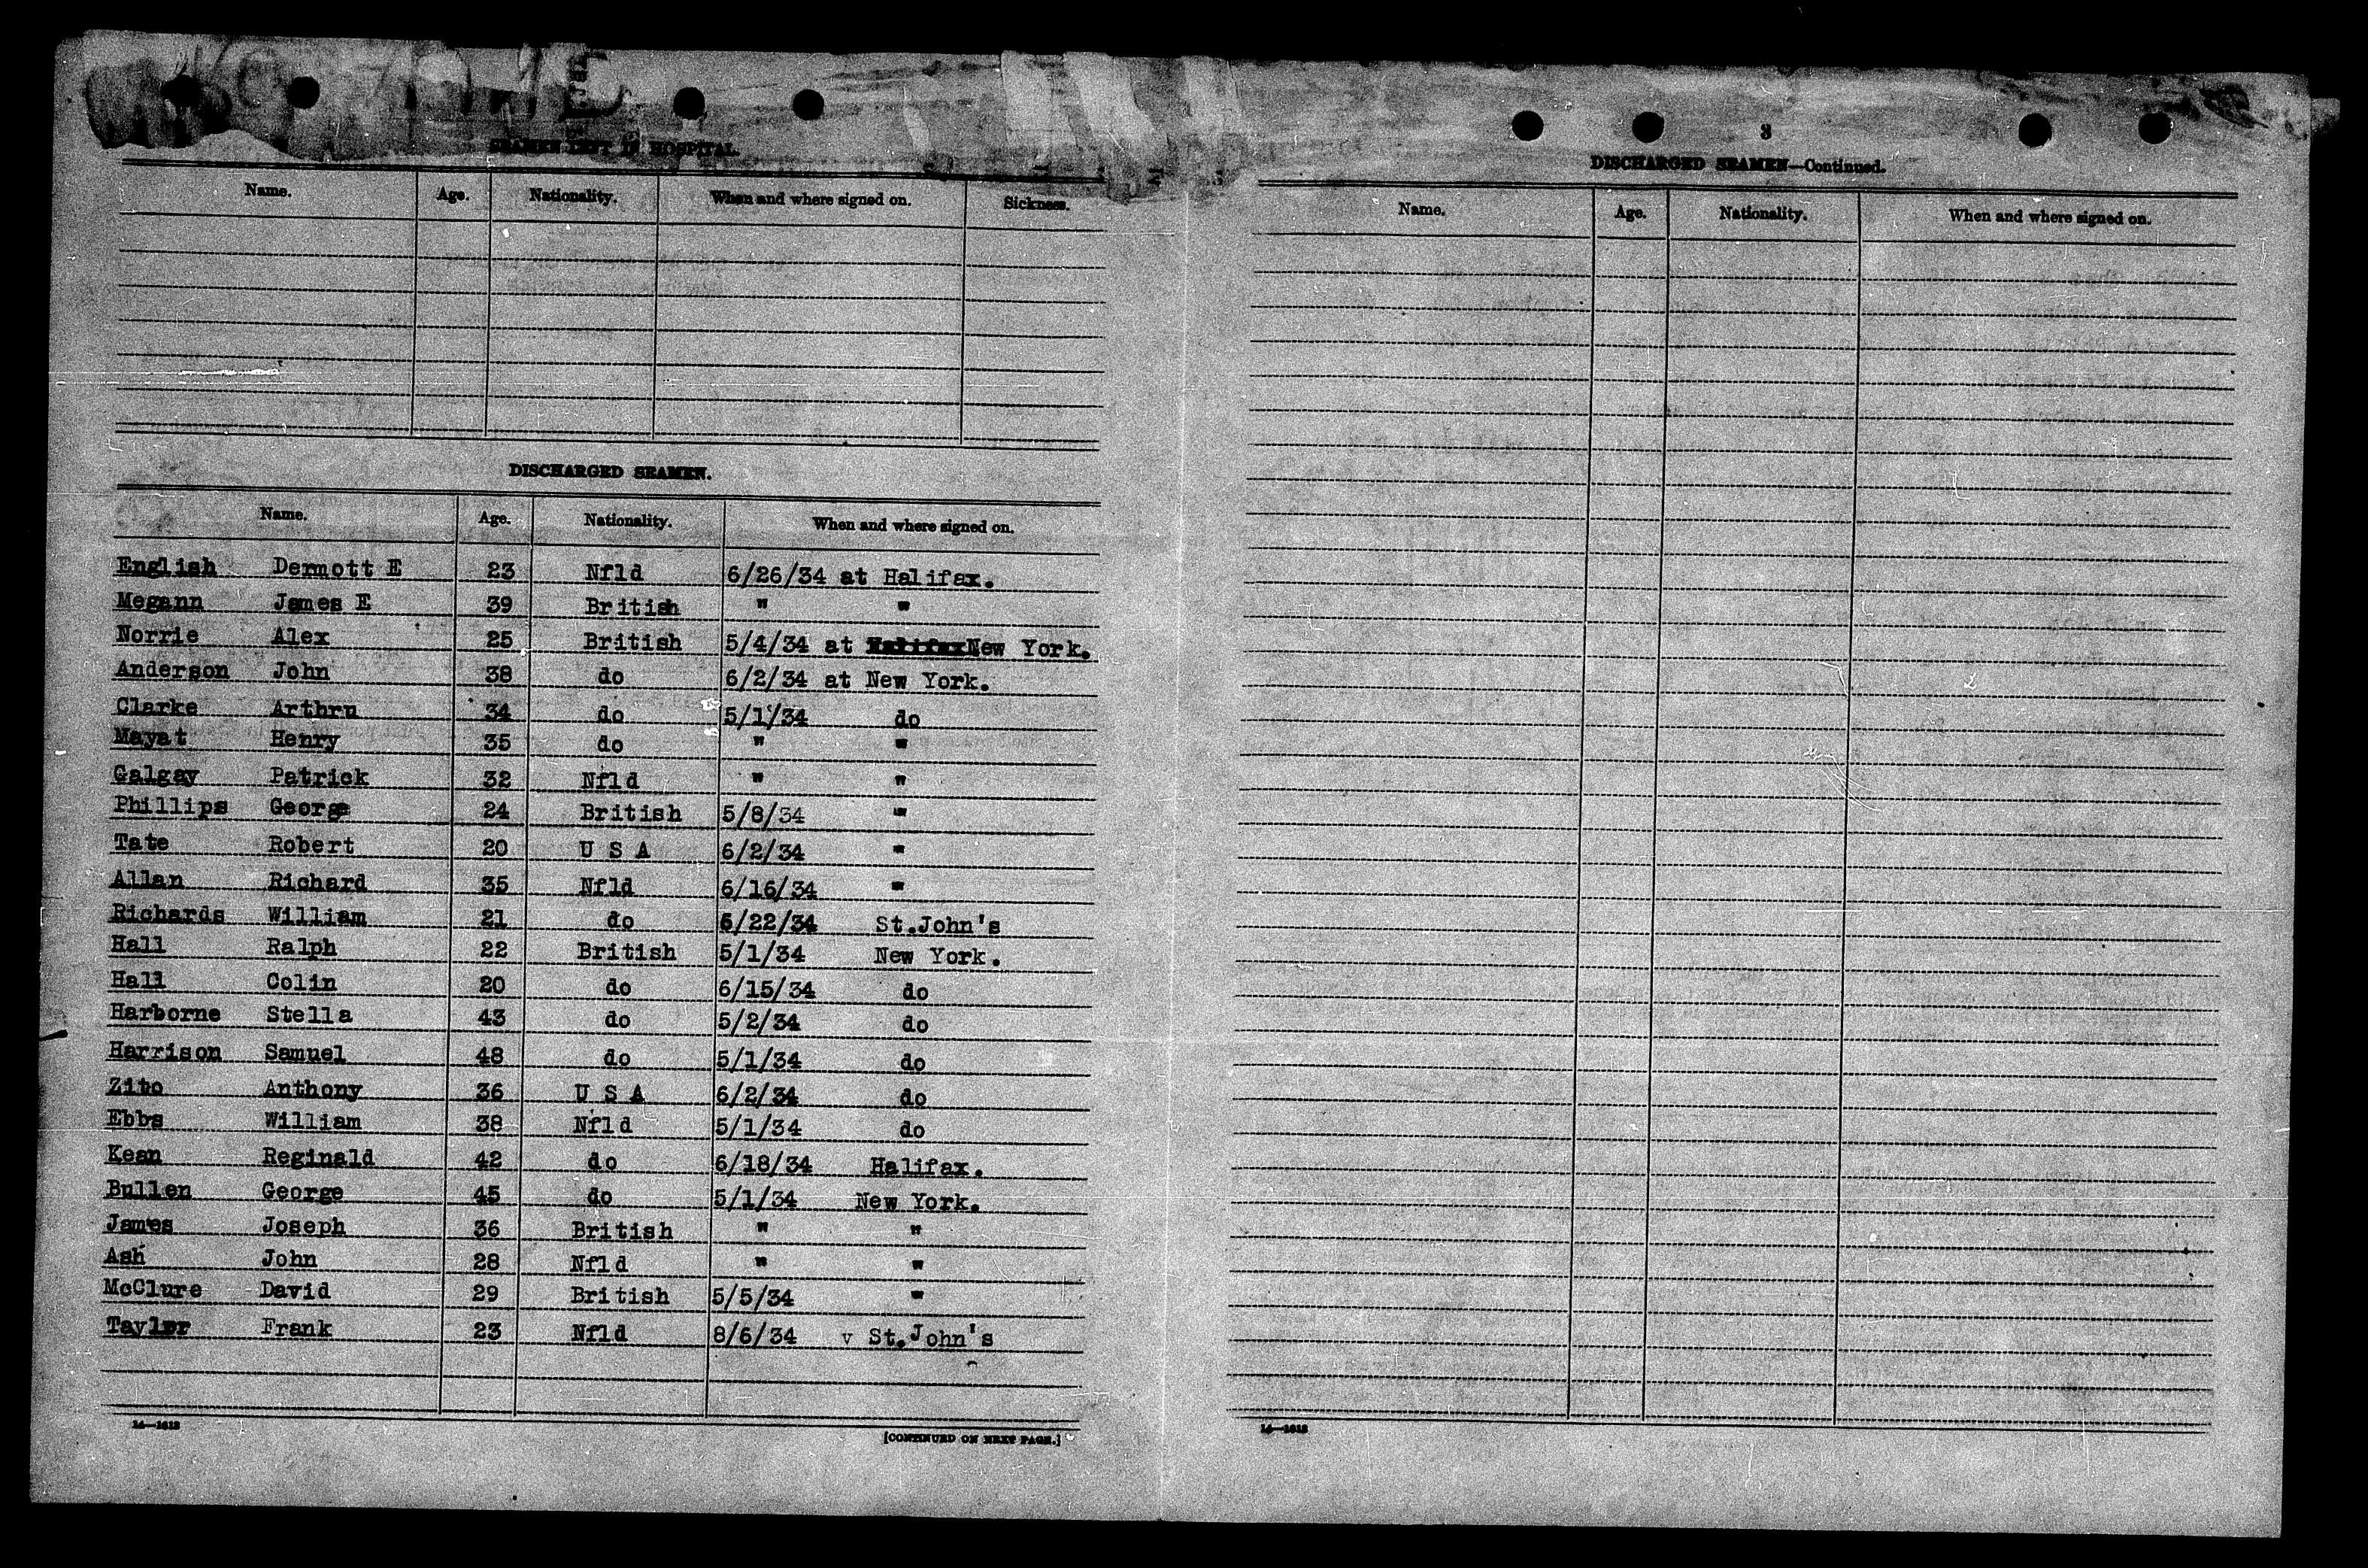 SEAMEN LEFT IN HOSPITAL.
Name. Age. Nationality. When and where signed on. Sickness.
DISCHARGED SEAMEN.
Name. Age. Nationality. When and where signed on.
English Dermott E 23 Nfld 6/26/34 at Halifax.
Megann James E 39 British " "
Norrie Alex 25 British 5/4/34 at New York.
Anderson John 38 do 6/2/34 at New York.
Clarke Arthru 34 do 5/1/34 do
Mayat Henry 35 do " "
Galgay Patrick 32 Nfld " "
Phillips George 24 British 5/8/34 "
Tate Robert 20 U S A 6/2/34 "
Allan Richard 35 Nfld 6/16/34 "
Richards William 21 do /22/34 St.John's
Hall Ralph 22 British 5/1/34 New York.
Hall Colin 20 do 6/15/34 do
Harborne Stella 43 do 5/2/34 do
Harrison Samuel 48 do 5/1/34 do
Zito Anthony 36 U S A 6/2/34 do
Ebbs William 38 Nfld 5/1/34 do
Kean Reginald 42 do 6/18/34 Halifax.
Bullen George 45 do 5/1/34 New York.
James Joseph 36 British " "
Ash John 28 Nfld " "
McClure David 29 British 5/5/34 "
Taylor Frank 23 Nfld 8/6/34 v St.John's
14—1613
[CONTINUED ON NEXT PAGE.]
3
DISCHARGED SEAMEN—Continued.
Name. Age. Nationality. When and where signed on.
14—1613